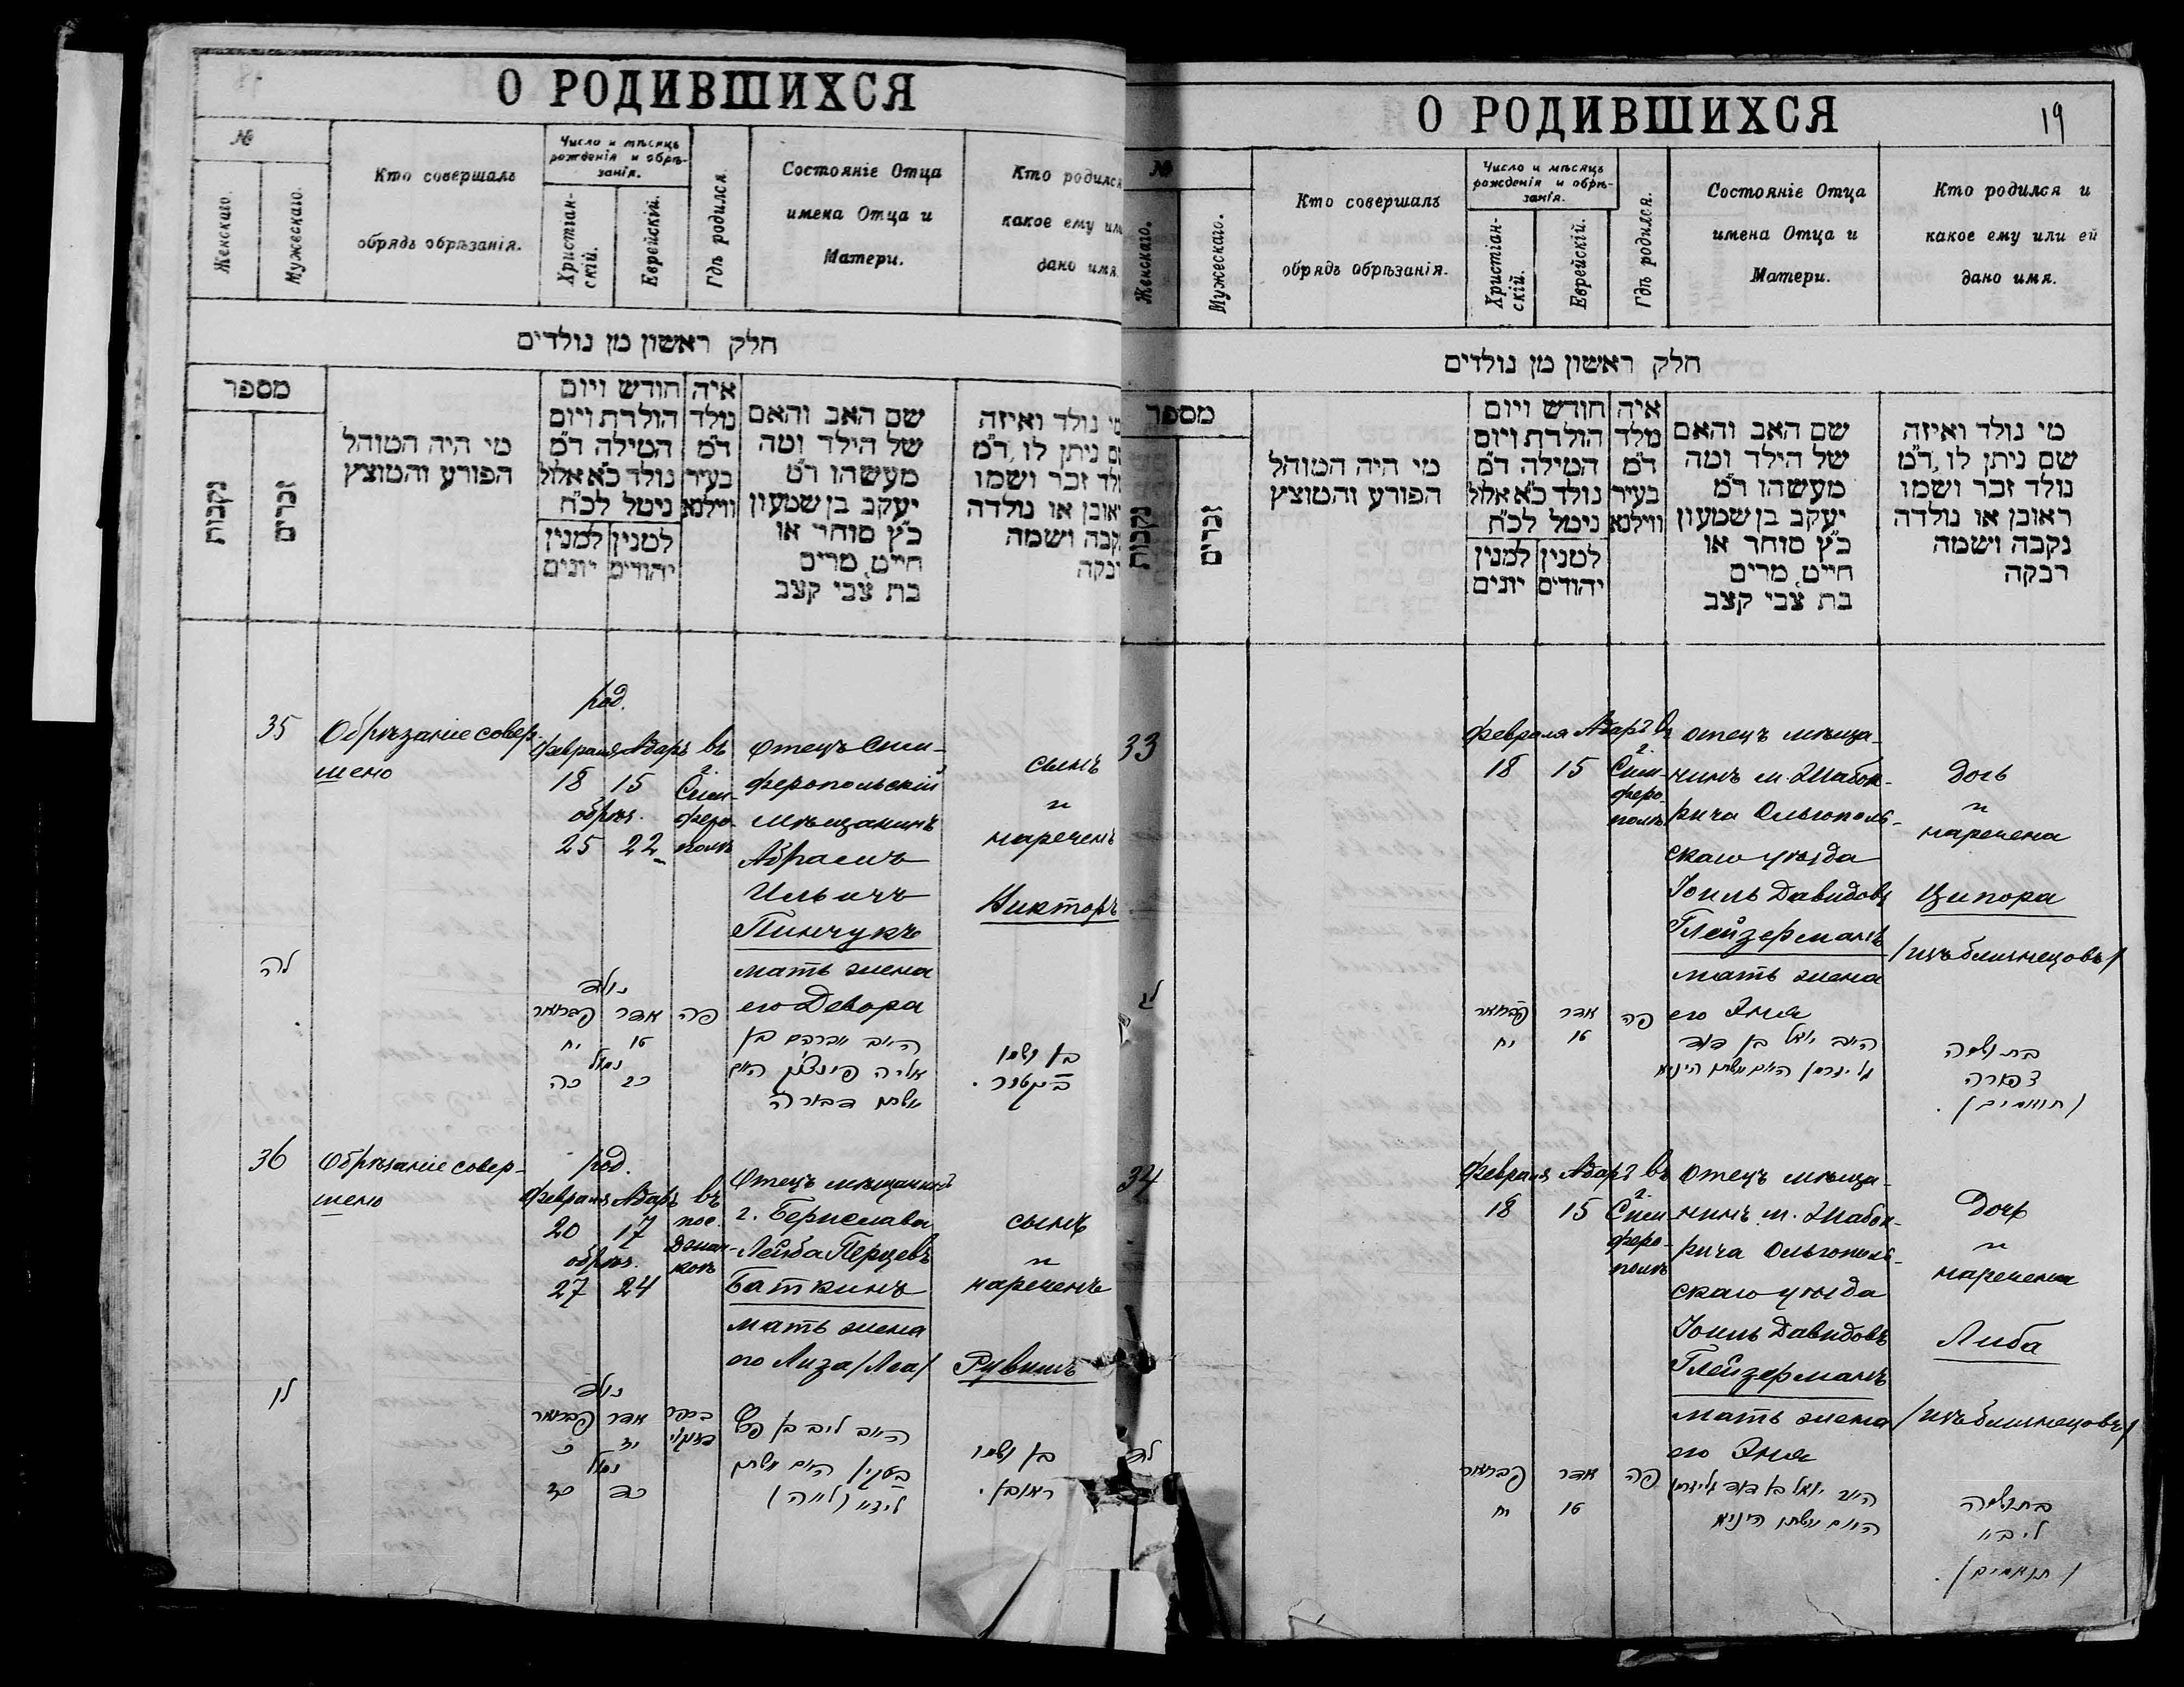 О РОДИВШИХСЯ
№
Женскаго.
Мужескаго.
Кто совершалъ
обрядъ обрѣзанія.
Число и мѣсяцъ
рожденія и обрѣ-
занія.
Христіан-
скій.
Еврейскій.
Гдѣ родился.
Состояніе Отца
имена Отца и
Матери.
Кто родился
какое ему или
дано имя.
חלק ראשון מן נולדים
מספר
נקבות
זכרים
מי היה המוהל
הפורע והמוצץ
חודש ויום
הולדת ויום
המילה ד״מ
נולד כ״א אלול
נימל לכ״ח
למנין יהודים
למנין יונים
איה
נולד
ד״מ
בעיר
ווילנא
שם האב והאם
של הילד ומה
מעשהו ד״מ
יעקב בן שמעון
כ״ץ סוחר או
חייט, מרים
בת צבי קצב
מי נולד ואיזה
שם ניתן לו, ד״מ
נולד זכר ושמו
ראובן או נולדה
נקבה ושמה
רבקה
35
Обрѣзаніе совер-
шено
род.
Февраля Адаръ
18 15
обрѣз.
25 22
въ
г.
Сим-
феро-
полѣ
Отецъ Сим-
феропольскій
мѣщанинъ
Абрамъ
Ильичъ
Пинчукъ
мать жена
его Девора
сынъ
и
нареченъ
Викторъ
לה
נולד
פברואר אדר פה
יח טו
נמול
כה כב
האב אברהם בן
אליה פינצוק האם
אשתו דבורה
בן ושמו
ביקטור.
36
Обрѣзаніе совер-
шено
род.
Февраля Адаръ
20 17
обрѣз.
27 24
въ
пос.
Джан-
коѣ
Отецъ мѣщанинъ
г. Берислава
Лейба Перцевъ
Баткинъ
мать жена
его Лиза /Леа/
сынъ
и
нареченъ
Рувимъ
לו
נולד
פברואר אדר
כ יז
נמול
כז כד
האב ליב בן פרץ
בטקין האם אשתו
ליזא (לאה)
בן ושמו
ראובן.
О РОДИВШИХСЯ
19
№
Женскаго.
Мужескаго.
Кто совершалъ
обрядъ обрѣзанія.
Число и мѣсяцъ
рожденія и обрѣ-
занія.
Христіан-
скій.
Еврейскій.
Гдѣ родился.
Состояніе Отца
имена Отца и
Матери.
Кто родился и
какое ему или ей
дано имя.
חלק ראשון מן נולדים
מספר
נקבות
זכרים
מי היה המוהל
הפורע והמוצץ
חודש ויום
הולדת ויום
המילה ד״מ
נולד כ״א אלול
נימל לכ״ח
למנין יהודים
למנין יונים
איה
נולד
ד״מ
בעיר
ווילנא
שם האב והאם
של הילד ומה
מעשהו ד״מ
יעקב בן שמעון
כ״ץ סוחר או
חייט, מרים
בת צבי קצב
מי נולד ואיזה
שם ניתן לו, ד״מ
נולד זכר ושמו
ראובן או נולדה
נקבה ושמה
רבקה
33
Февраля Адаръ
18 15
въ
г.
Сим-
феро-
полѣ
Отецъ мѣща-
нинъ м. Жабок-
рича Ольгополь-
скаго уѣзда
Іоиль Давидовъ
Глейзерманъ
мать жена
его Эня
Дочь
и
наречена
Ципора
/изъ близнецовъ/
לג
פברואר אדר פה
יח טו
האב יואל בן דוד
גליזרמן האם אשתו היניא
בת ושמה
צפורה
(תואמים).
34
Февраля Адаръ
18 15
въ
г.
Сим-
феро-
полѣ
Отецъ мѣща-
нинъ м. Жабок-
рича Ольгополь-
скаго уѣзда
Іоиль Давидовъ
Глейзерманъ
мать жена
его Эня
Дочь
и
наречена
Либа
/изъ близнецовъ/
לד
פברואר אדר פה
יח טו
האב יואל בן דוד גליזרמן
האם אשתו היניא
בת ושמה
ליבא
(תואמים).